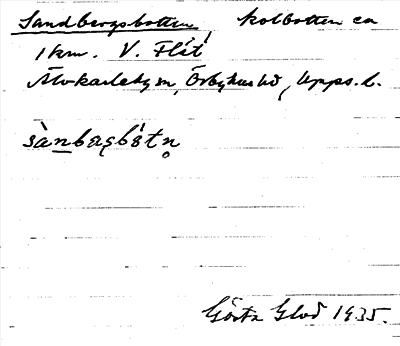 Sandbergsbotten, kolbotten ca
1 km. V. Flät
Älvkarleby sn, Örbyhus hd, Upps. l.
sànbaʂbòtn̥
Gösta Glad 1935.